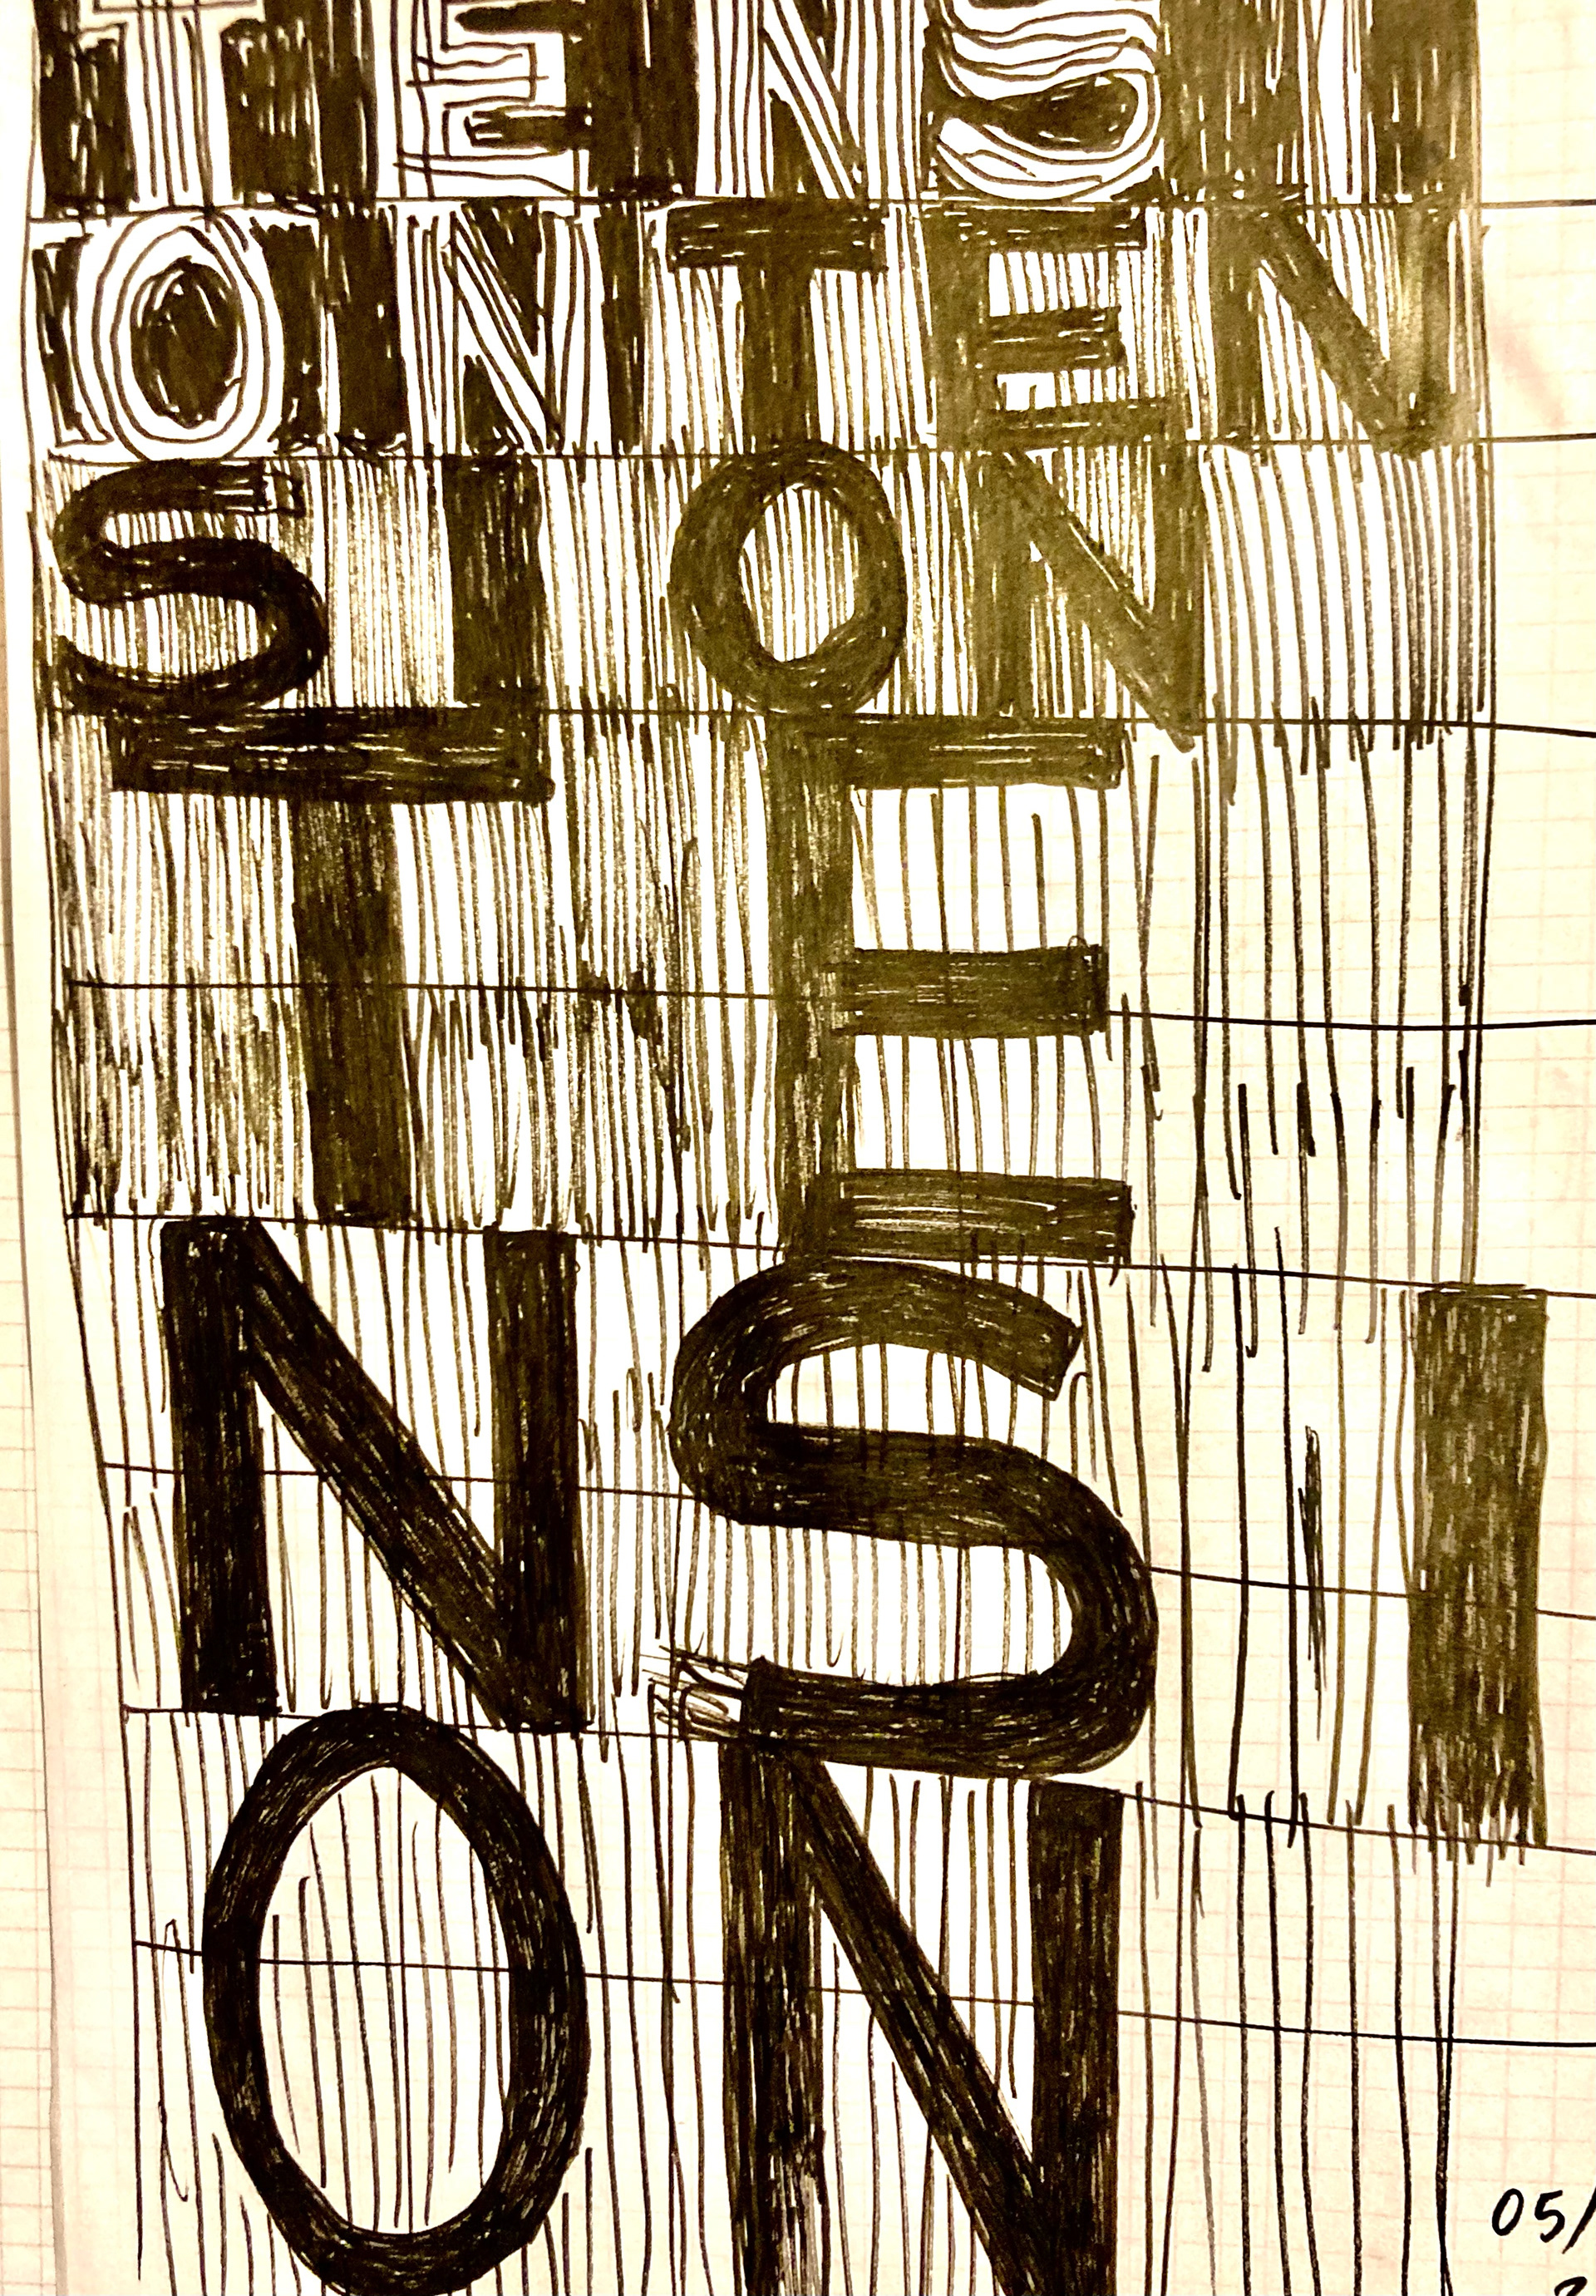 TENSI
ONTEN
SION
TE
NSI
ON
05/